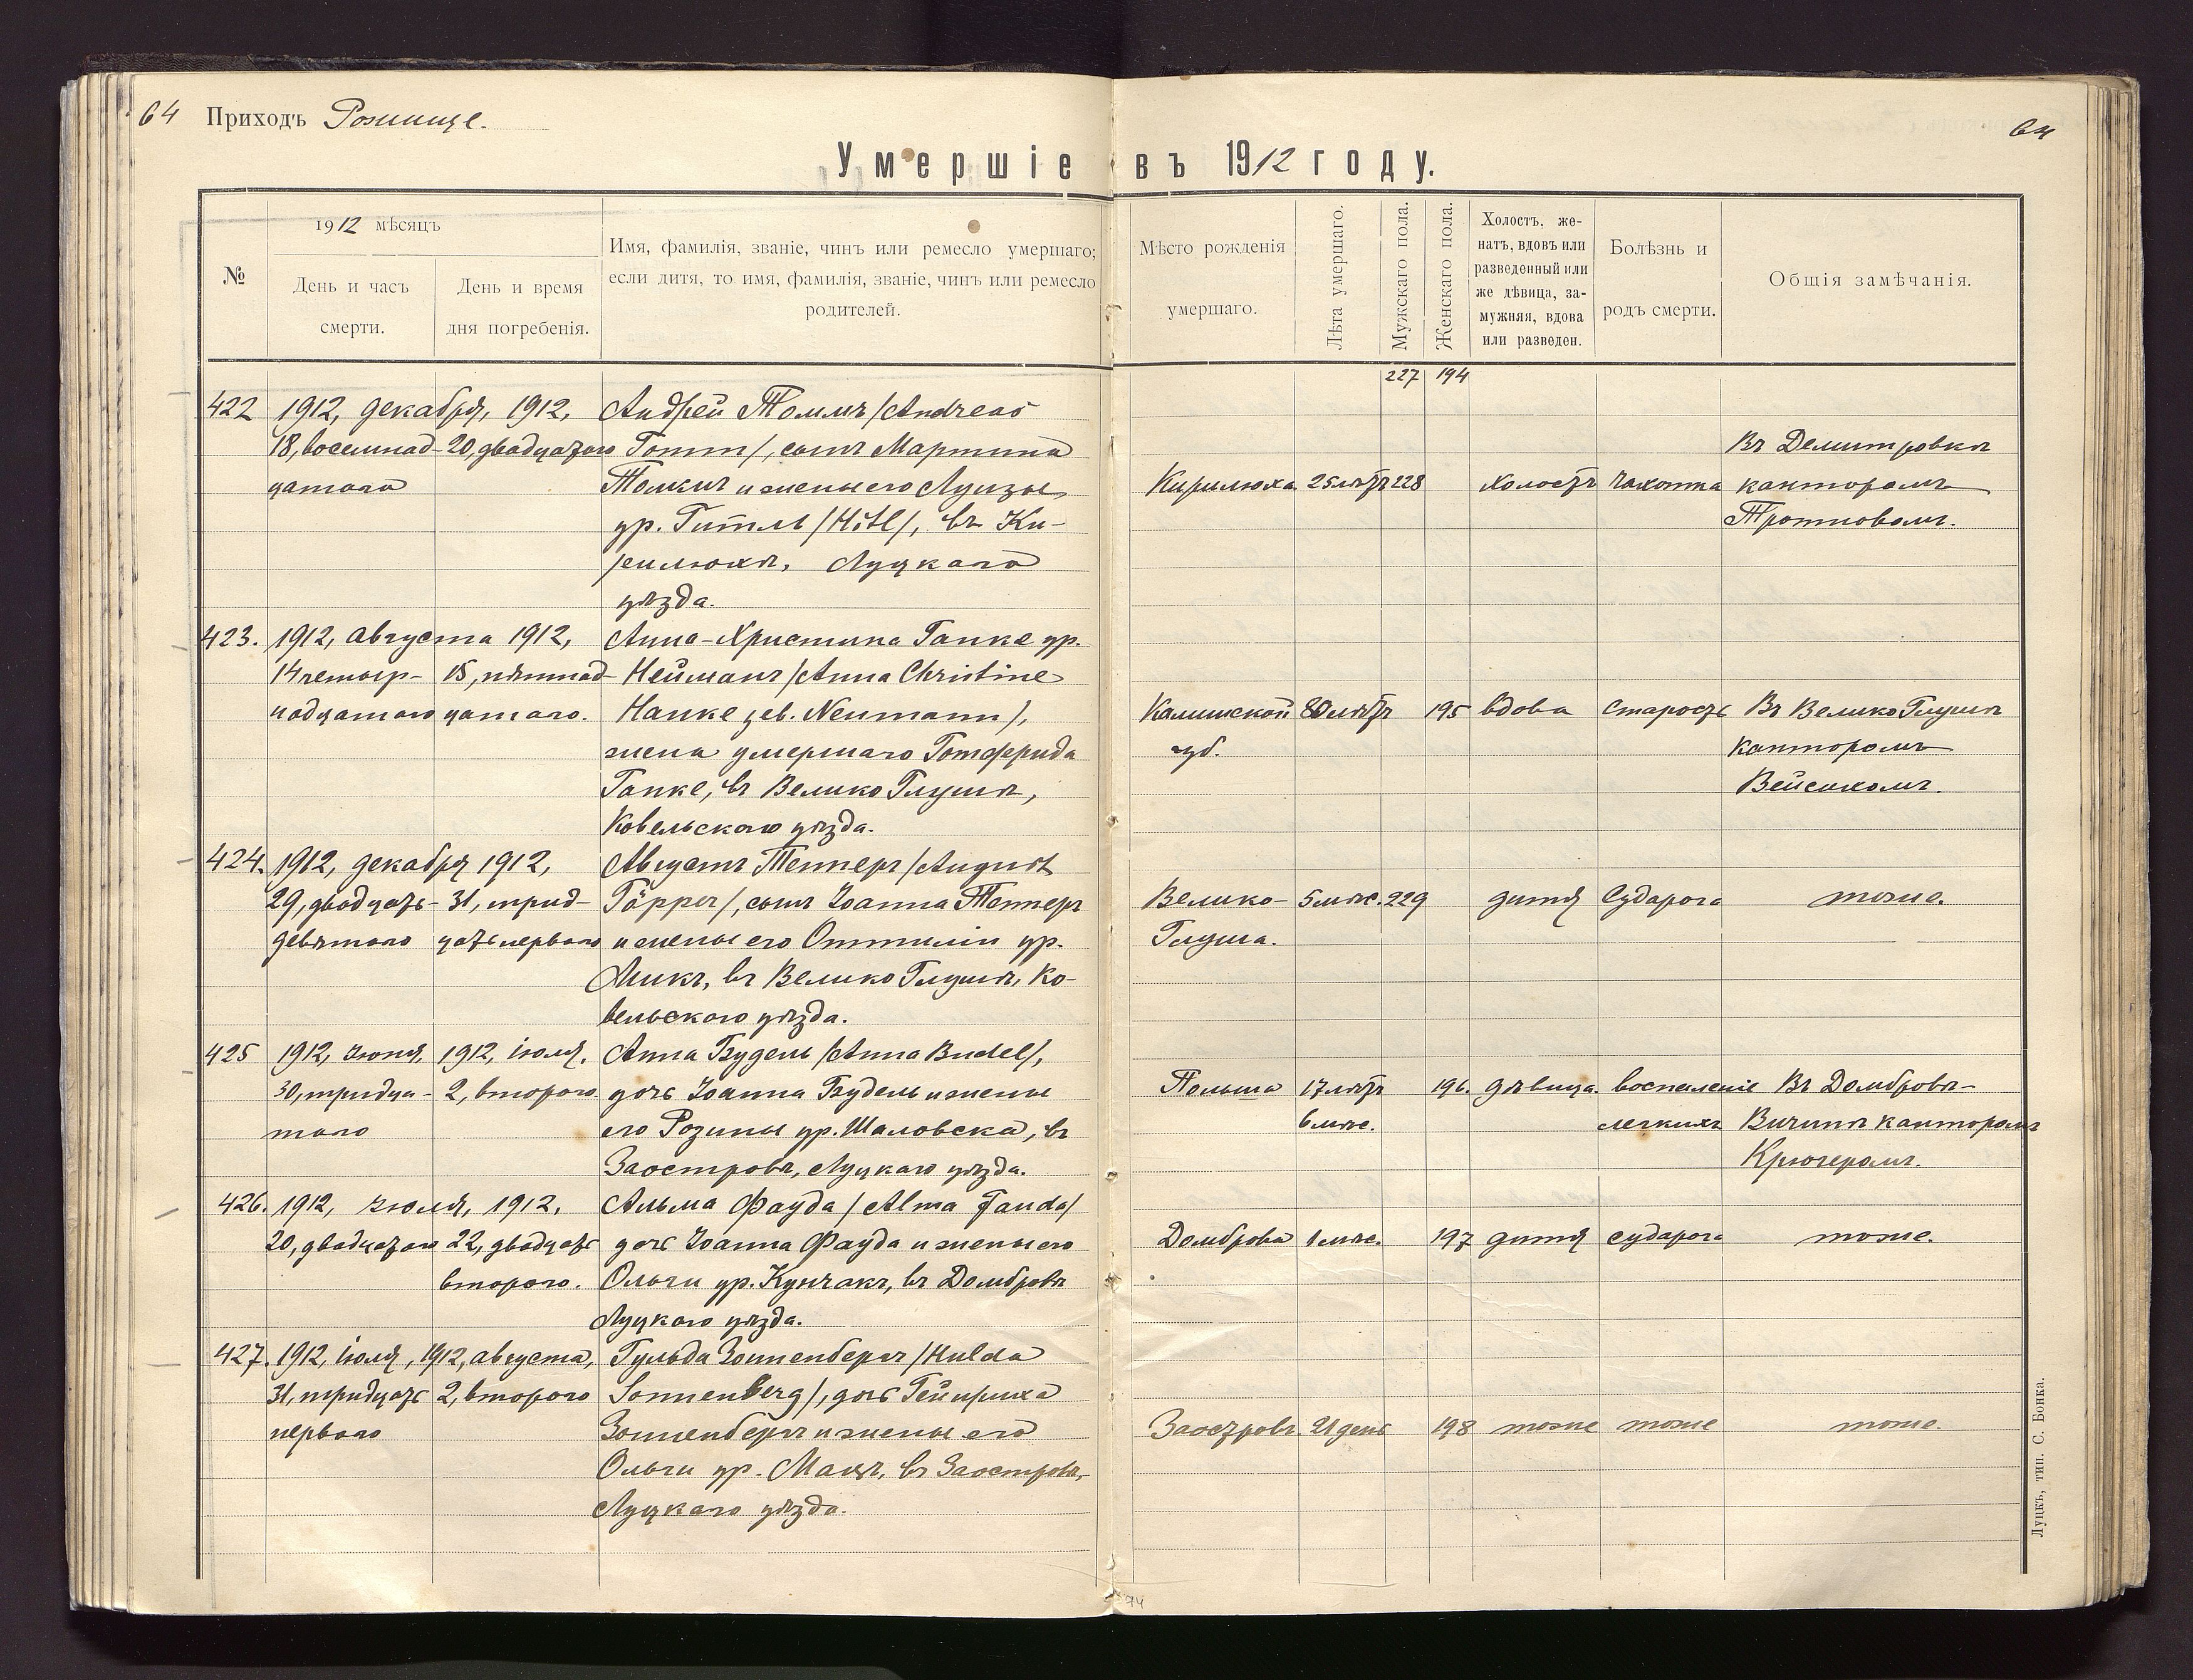 64 Приходъ Рожище.
64
Умершіе въ 1912 году.
№
1912 мѣсяцъ
День и часъ
смерти.
День и время
дня погребенія.
Имя, фамилія, званіе, чинъ или ремесло умершаго;
если дитя, то имя, фамилія, званіе, чинъ или ремесло
родителей.
Мѣсто рожденія
умершаго.
Лѣта умершаго.
Мужскаго пола.
Женскаго пола.
Холостъ, же-
натъ, вдовъ или
разведенный или
же дѣвица, за-
мужняя, вдова
или разведен.
Болѣзнь и
родъ смерти.
Общія замѣчанія.
227 194
422 1912, декабря, 1912, Андрей /Andreas
18, восемнад- 20, двадцатаго сынъ Мартина
цатаго и жены его Луизы
ур. Гитль /Hitl/, въ Ки-
рилюхѣ, Луцкаго
уѣзда.
Кирилюха 25 лѣтъ 228 холостъ чахотка
Въ Демитровкѣ
канторомъ
423. 1912, августа 1912, Анна-Христина Ганке ур.
14 четыр- 15, пятнад- Нейманъ /Anna Christine
надцатаго цатаго. Hanke geb. Neumann/,
жена умершаго Готфрида
Ганке, въ Велико Глушѣ,
Ковельского уѣзда.
Калишской 80 лѣтъ 195 вдова старость Въ Велико Глушѣ
губ. канторомъ
424. 1912, декабря 1912, Августъ Тепперъ /August
29, двадцать- 31, трид- Töpper/, сынъ Іоанна Тепперъ
девятаго цать перваго и жены его Оттиліи ур.
Микъ, въ Велико Глушѣ, Ко-
вельского уѣзда.
Велико- 5 мѣс. 229 дитя Судорога тоже.
Глуша.
425 1912, Іюня, 1912, іюля, Анна Будель /Anna Budel/,
30, тридца- 2, второго дочь Іоанна Будель и жены
таго его Розины ур. Шаловска, въ
Заостровѣ, Луцкаго уѣзда.
Польша 17 лѣтъ 196. дѣвица. воспаленіе Въ Домбровѣ-
6 мѣс. легкихъ канторомъ
Крюгеромъ.
426. 1912, Іюля, 1912, Альма Фауда /Alma Fauda/
20, двадцатаго 22, двадцать дочь Іоанна Фауда и жены его
второго. Ольги ур. Кунчакъ, въ Домбровѣ
Луцкаго уѣзда.
Домброва 1 мѣс. 197 дитя судорога тоже.
427. 1912, іюля, 1912, августа, Гульда Зонненбергъ /Hulda
31, тридцать 2, второго Sonnenberg/, дочь Гейнриха
перваго Зонненбергъ и жены его
Ольги ур. въ Заостровѣ,
Луцкаго уѣзда.
Заостровъ 21 день 198 тоже тоже тоже.
Луцкъ, тип. С. Бонка.
74